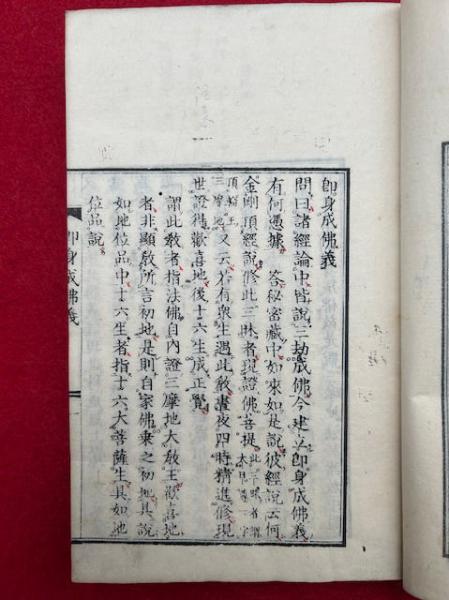 即身成佛義
問曰諸經論中皆說三劫成佛今建立即身成佛義
有何憑據 答秘密藏中如來如是說彼經說云何
金剛頂經說修此三昧者現證佛菩提
頂輪王
三摩地又云若有衆生遇此教晝夜四時精進修現
世證得歡喜地後十六生成正覺
謂此教者指法佛自內證三摩地大教王歡喜地
者非顯教所言初地是則自家佛乘之初地具說
如地位品中十六生者指十六大菩薩生具如地
位品說
即身成佛義